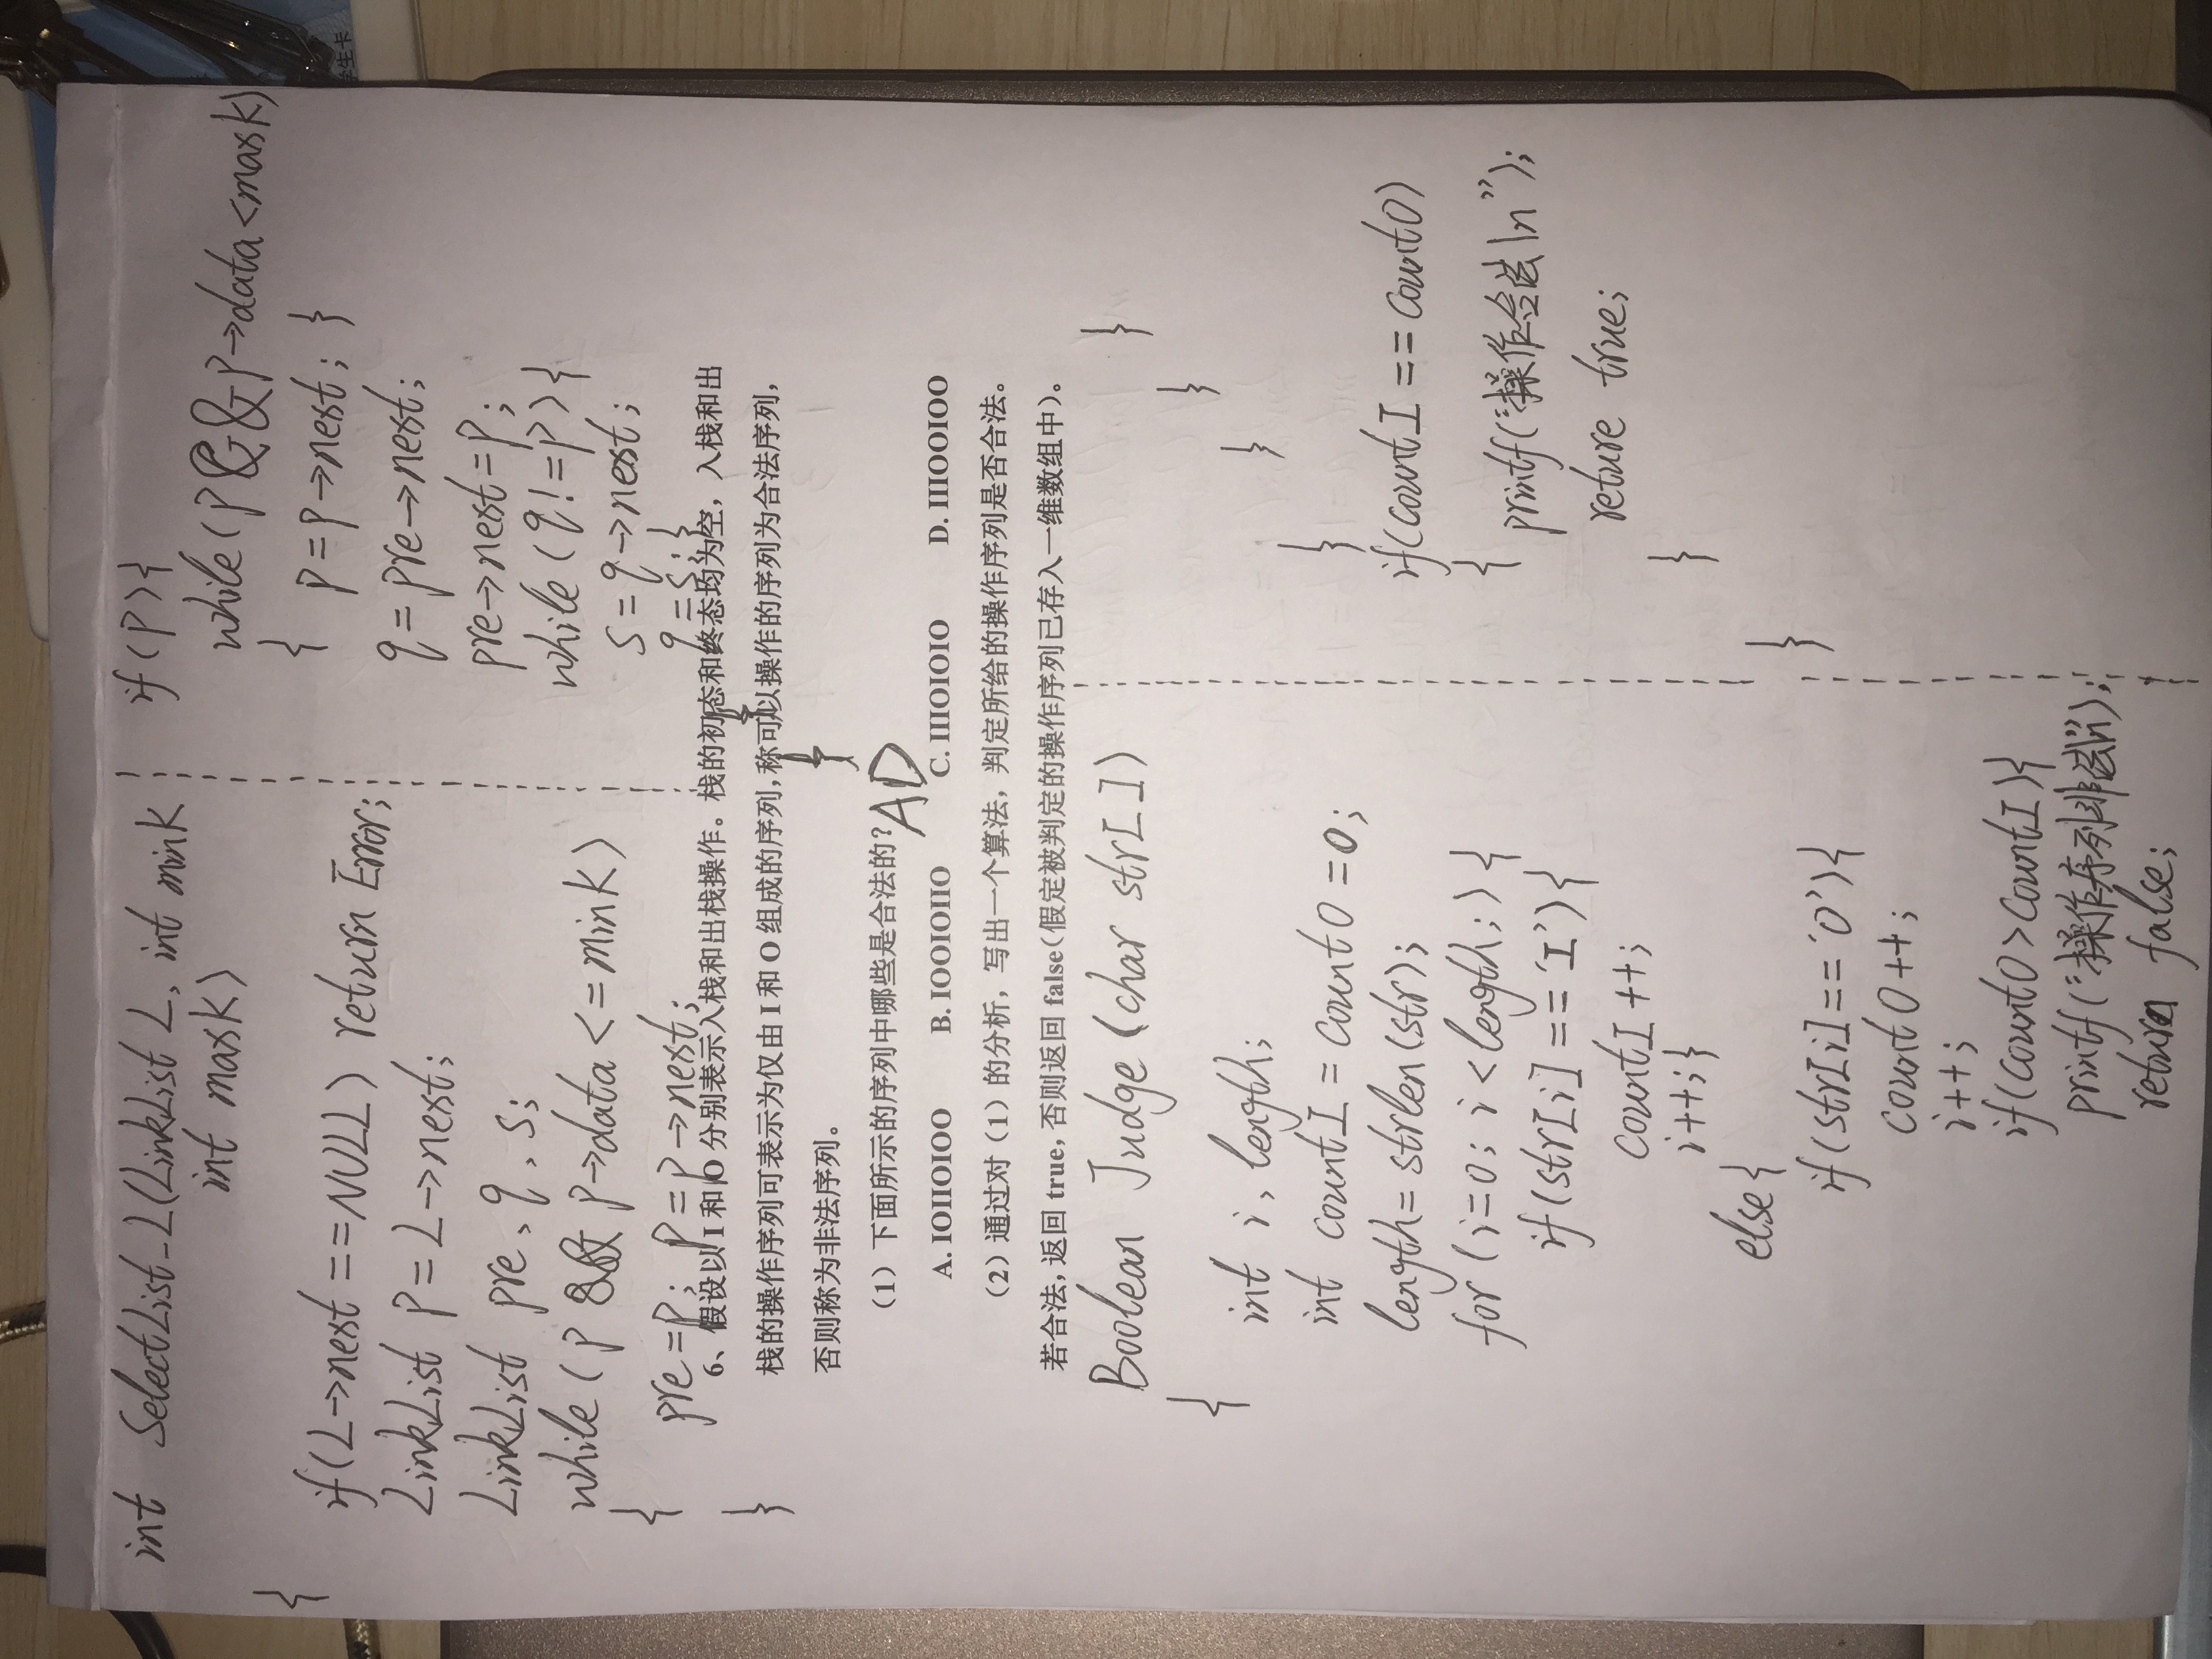 int SelectList_L(LinkList L, int mink
int maxk)
{
if(L→next ==NULL) return Error;
LinkList P=L→next;
LinkList pre, q, s;
while (P && P→data <= mink)
{
pre=p; p=p→next;
}
if(P){
while(P&&P→data<maxk)
{ p=p→next; }
q=pre→next;
pre→next=p;
while (q!=p){
s=q→next;
q=s;}
}
}
6、假设以 I 和 O 分别表示入栈和出栈操作。栈的初态和终态均为空，入栈和出
栈的操作序列可表示为仅由 I 和 O 组成的序列，称可以操作的序列为合法序列，
否则称为非法序列。
（1）下面所示的序列中哪些是合法的？AD
A. IOIIOIOO B. IOOIOIIO C. IIIOIOIO D. IIIOOIOO
（2）通过对（1）的分析，写出一个算法，判定所给的操作序列是否合法。
若合法，返回 true，否则返回 false（假定被判定的操作序列已存入一维数组中）。
Boolean Judge (char str[ ])
{
int i, length;
int countI = countO =0;
length= strlen(str);
for (i=0; i<length;){
if(str[i] == 'I'){
countI ++;
i++;}
else{
if(str[i]== 'O'){
countO++;
i++;
if(countO>countI){
printf("操作序列非法\n");
return false;
}
}
}
}
if(countI == countO)
{
printf("操作合法\n");
reture true;
}
}
学生卡